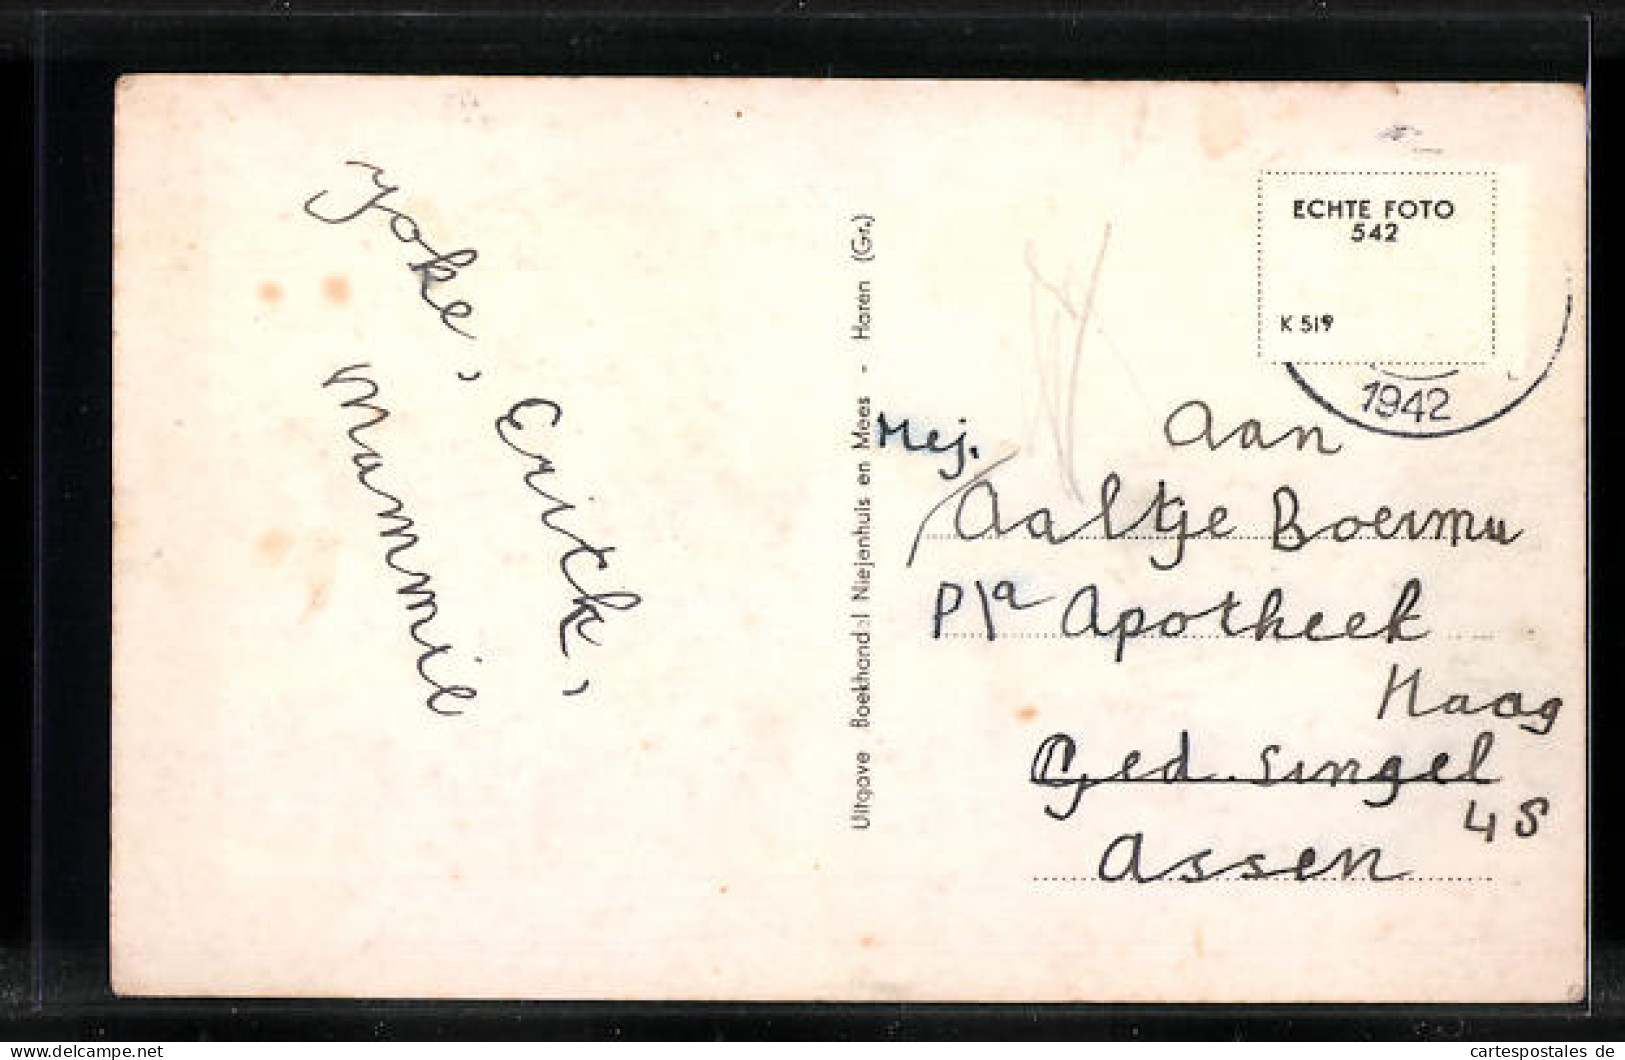 Yoke, Erick,
Mammie
Uitgave Boekhandel Niejenhuis en Mees - Haren (Gr.)
ECHTE FOTO
542
K 519
1942
Aan
Mej.
Aaltje
P/a Apotheek
Haag
Ged. Singel
45
Assen
cartespostales de